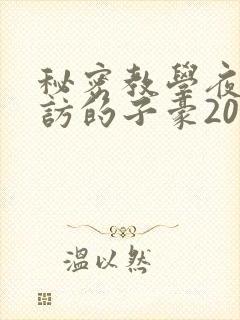 秘密教學夜
訪的子豪20
溫以然